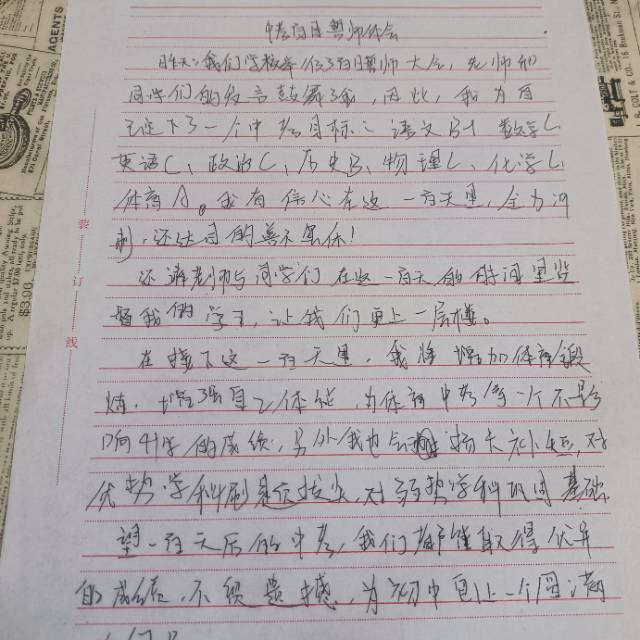 中考百日誓师体会
昨天,我们学校举行了百日誓师大会,老师和
同学们的发言鼓舞了我,因此,我为自
己定下了一个中考目标:语文B+ 数学C、
英语C、政治C、历史B、物理C、化学C、
体育A。我有信心在这一百天里,全力冲
刺,还达目的誓不罢休!
还请老师与同学们在这一百天的时间里监
督我的学习,让我们更上一层楼。
在接下这一百天里,我将增加体育锻
炼,增强自己体能,为体育中考争一个不影
响升学的成绩,另外我也会扬长补短,对
优势学科刷题拔尖,对弱势学科巩固基础
望一百天后的中考,我们都能取得优异
的成绩,不留遗憾,为初中画上一个圆满
装
订
线
AGENTS
$3.00